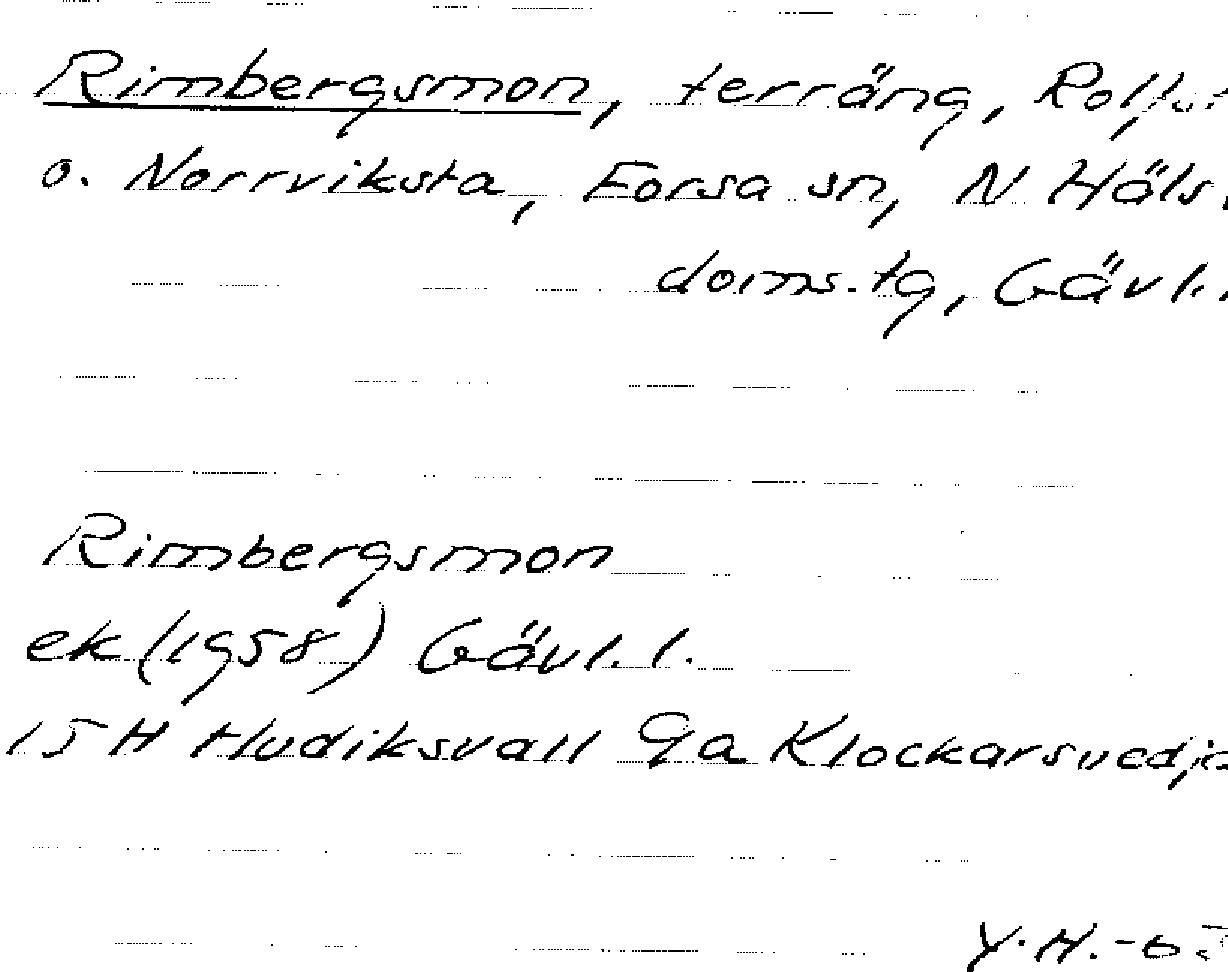 Rimbergsmon, terräng,
o. Norrviksta, Forsa sn, N Häls.
doms.tg, Gävl.
Rimbergsmon
ek (1958) Gävl. l.
15H Hudiksvall 9a Klockarsvedja
Y.H.-6